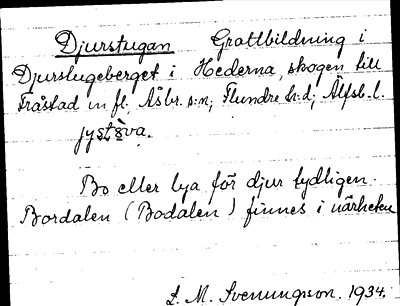 Djurstugan Grottbildning i
Djurstugeberget i Hederna, skogen till
Tråstad m fl. Åsbr. s:n, Flundre h:d, Älfsb. l.
jystöva.
Bo eller lya för djur tydligen.
Bordalen (Bodalen) finnes i närheten
L. M. Svenungsson. 1934.